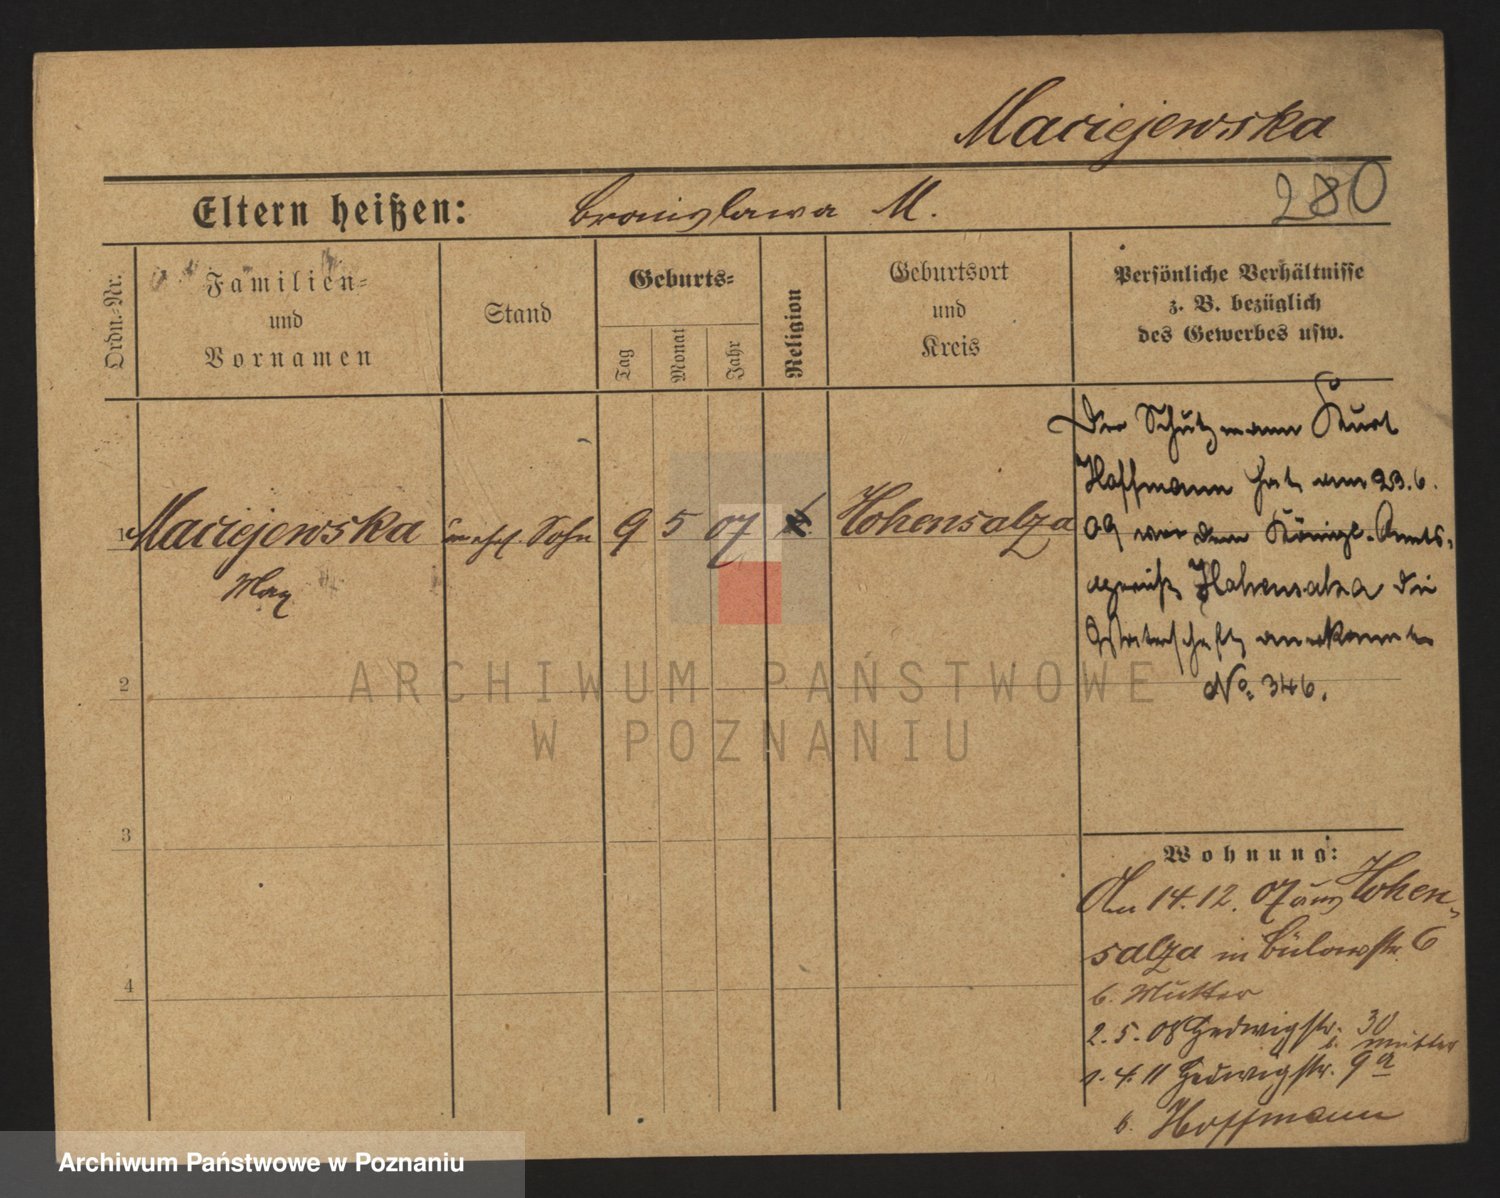 Maciejewska
280
Eltern heißen: Bronislawa M.
Ordn.-Nr.
Familien-
und
Vornamen
Stand
Geburts-
Tag
Monat
Jahr
Religion
Geburtsort
und
Kreis
Persönliche Verhältnisse
z. B. bezüglich
des Gewerbes usw.
Der Schutzmann Kurt
Hoffmann hat am 23.6.
09 vor dem Königl. Amts-
gericht Hohensalza die
Vaterschaft anerkannt
No. 346.
1 Maciejewska unehel. Sohn 9 5 07 k. Hohensalza
Max
2
3
4
Wohnung:
Am 14.12.07 aus Hohen-
salza in Bülowstr. 6
b. Mutter
2.5.08 Hedwigstr. 30
b. Mutter
1.4.11 Hedwigstr. 9a
b. Hoffmann
ARCHIWUM PAŃSTWOWE
W POZNANIU
Archiwum Państwowe w Poznaniu